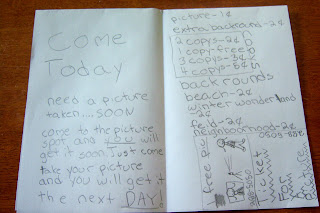 Come
Today
need a picture
taken....SOON
come to the picture
spot and you will
get it soon just come
take your picture
and you will get it
the next DAY!
picture-1¢
extra backround-2¢
2 copys-2¢
1 copy-free
3 copys-3¢
4 copys-6¢
back rounds
beach-2¢
winter wonder land
2¢
field-2¢
neighboorhood-2¢
free
ticket
From